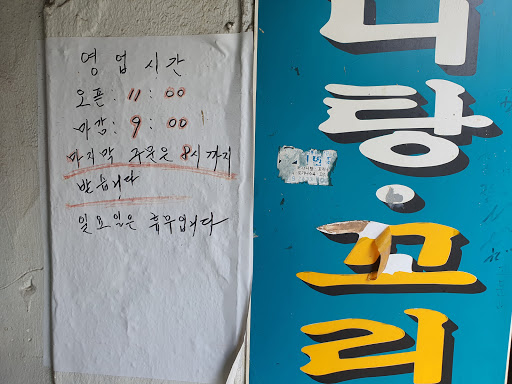 영업시간
오픈: 11:00
마감: 9:00
마지막 주문은 8시까지
받습니다
일요일은 휴무입니다
탕·꼬리